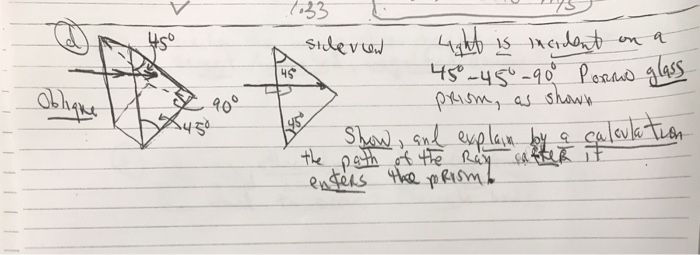 1.33
d
45°
side view
Light is incident on a
45°
45°-45°-90° Porro glass
Oblique
90°
prism, as shown
45°
45°
Show, and explain by a calculation
the path of the Ray after it
enters the prism!